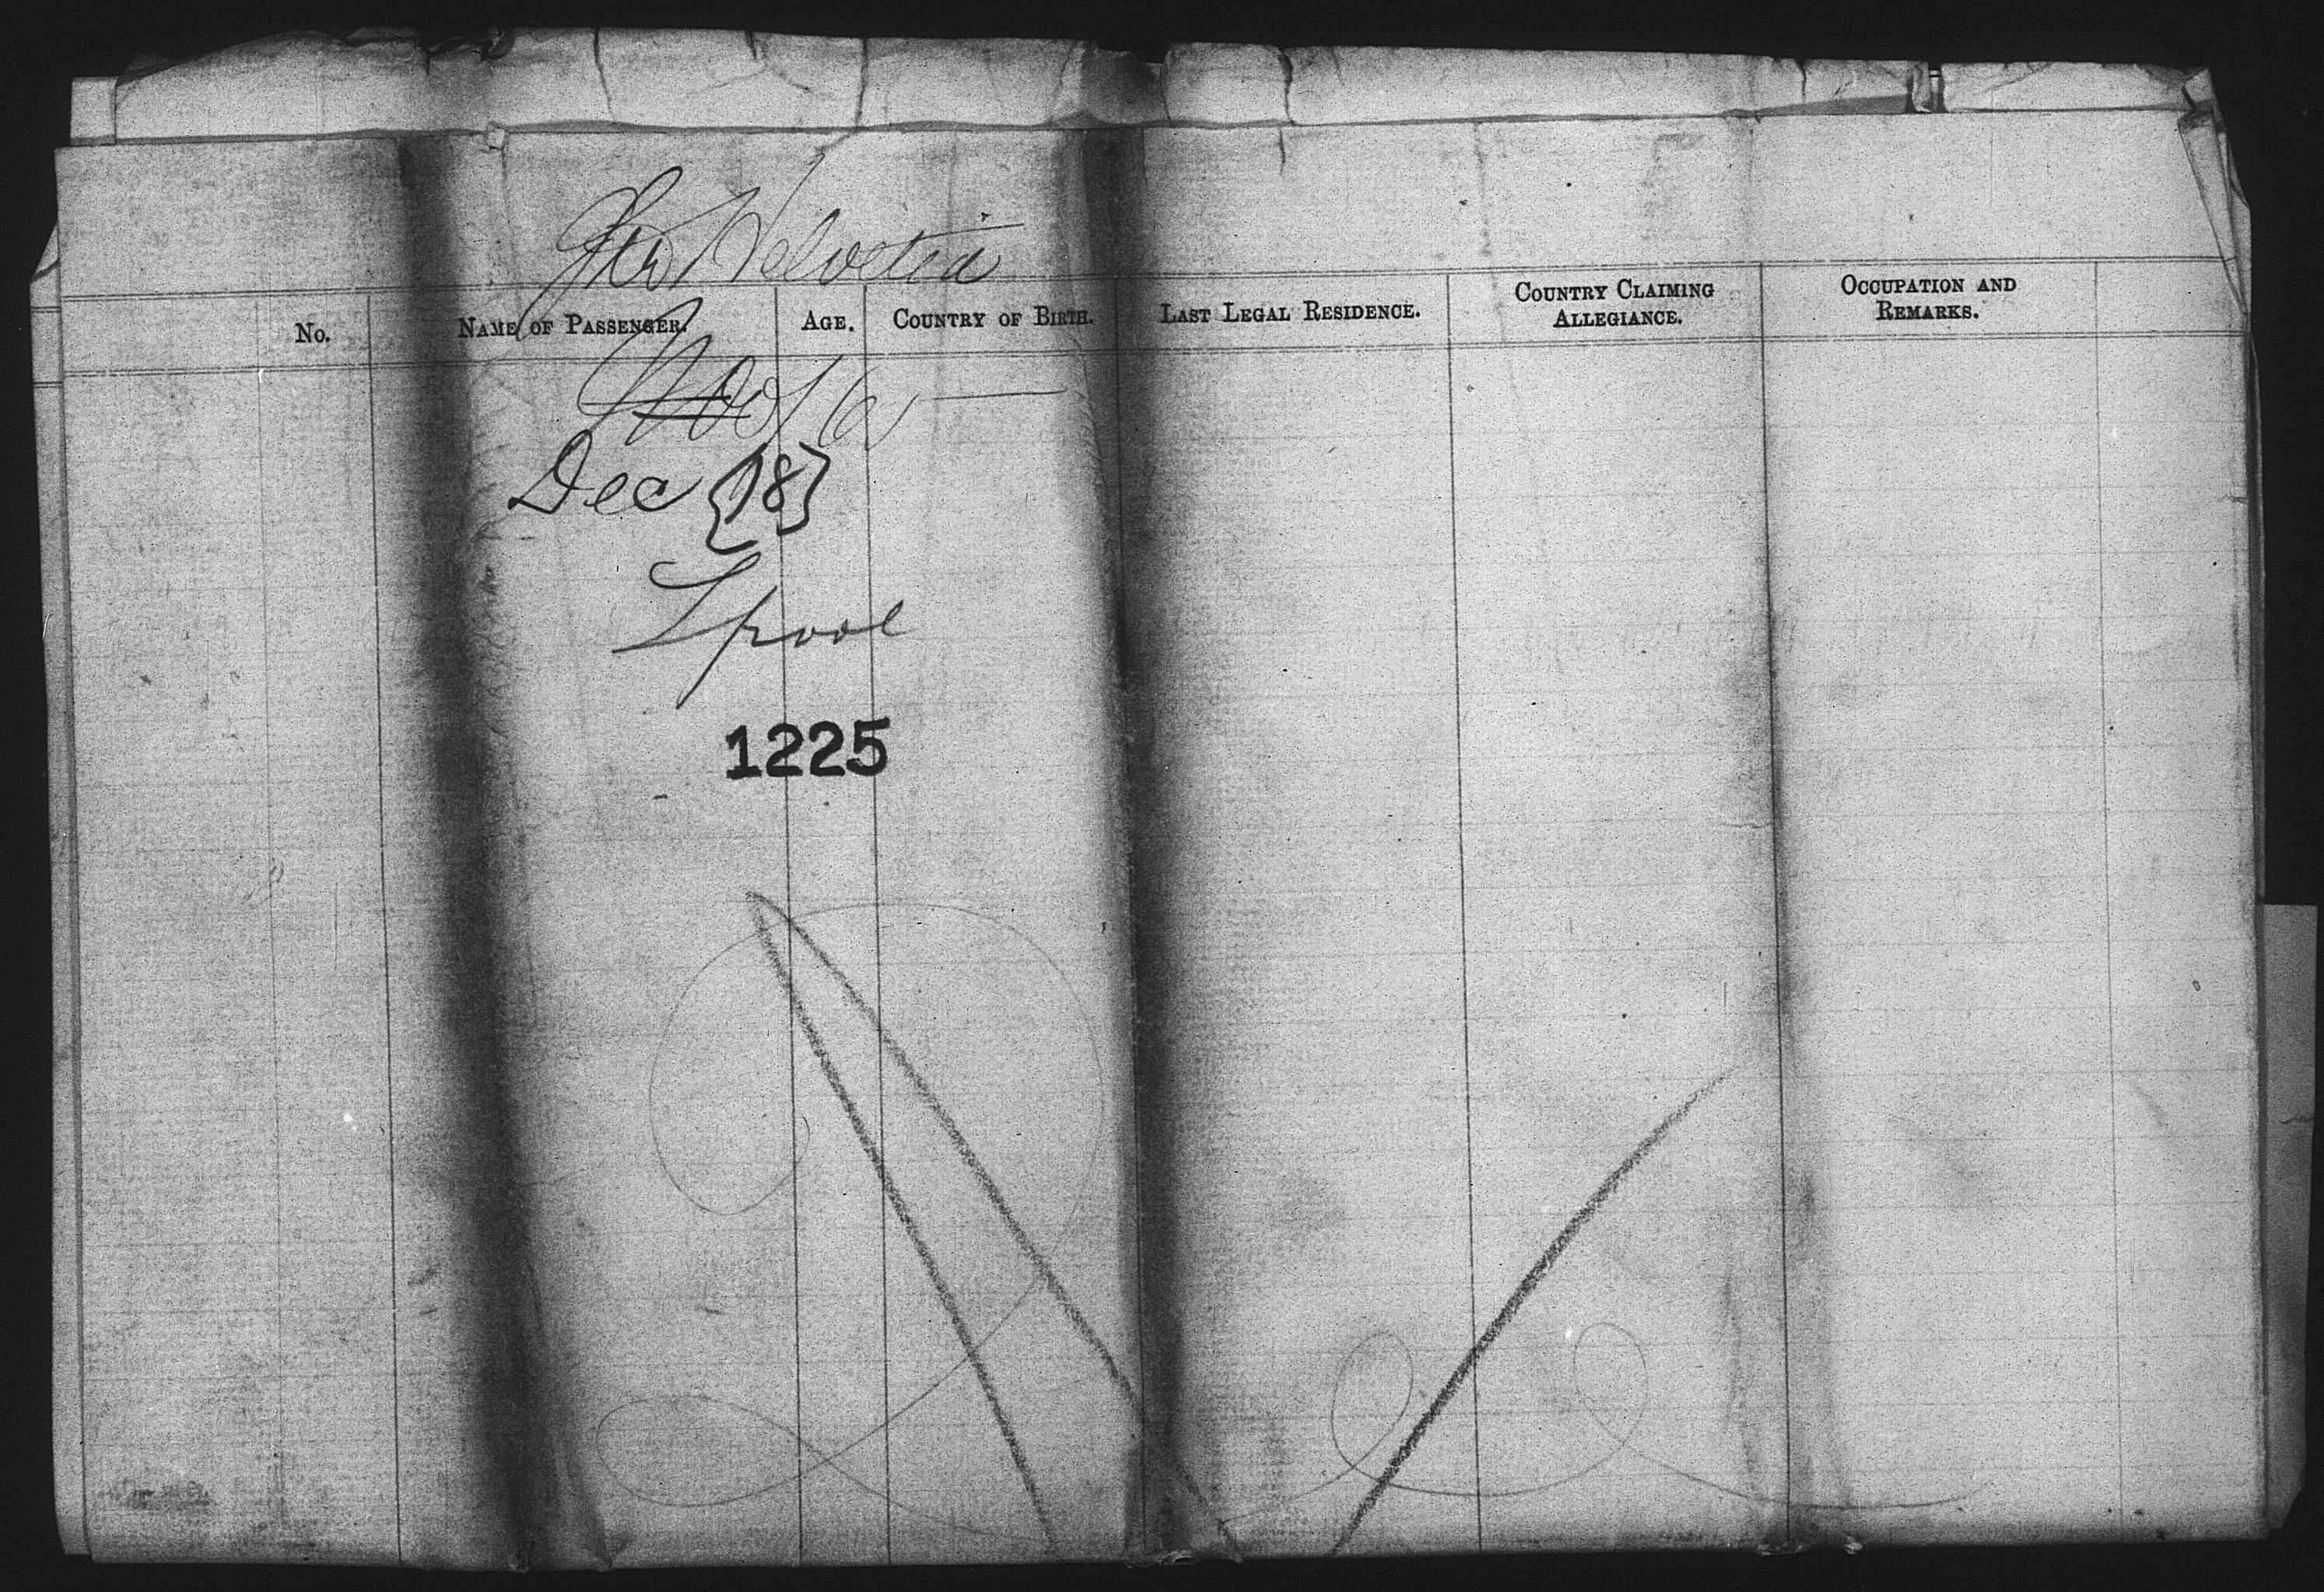 Str Helvetia
No. NAME OF PASSENGER. AGE. COUNTRY OF BIRTH. LAST LEGAL RESIDENCE. COUNTRY CLAIMING ALLEGIANCE. OCCUPATION AND REMARKS.
Dec {18}
Lpool
1225